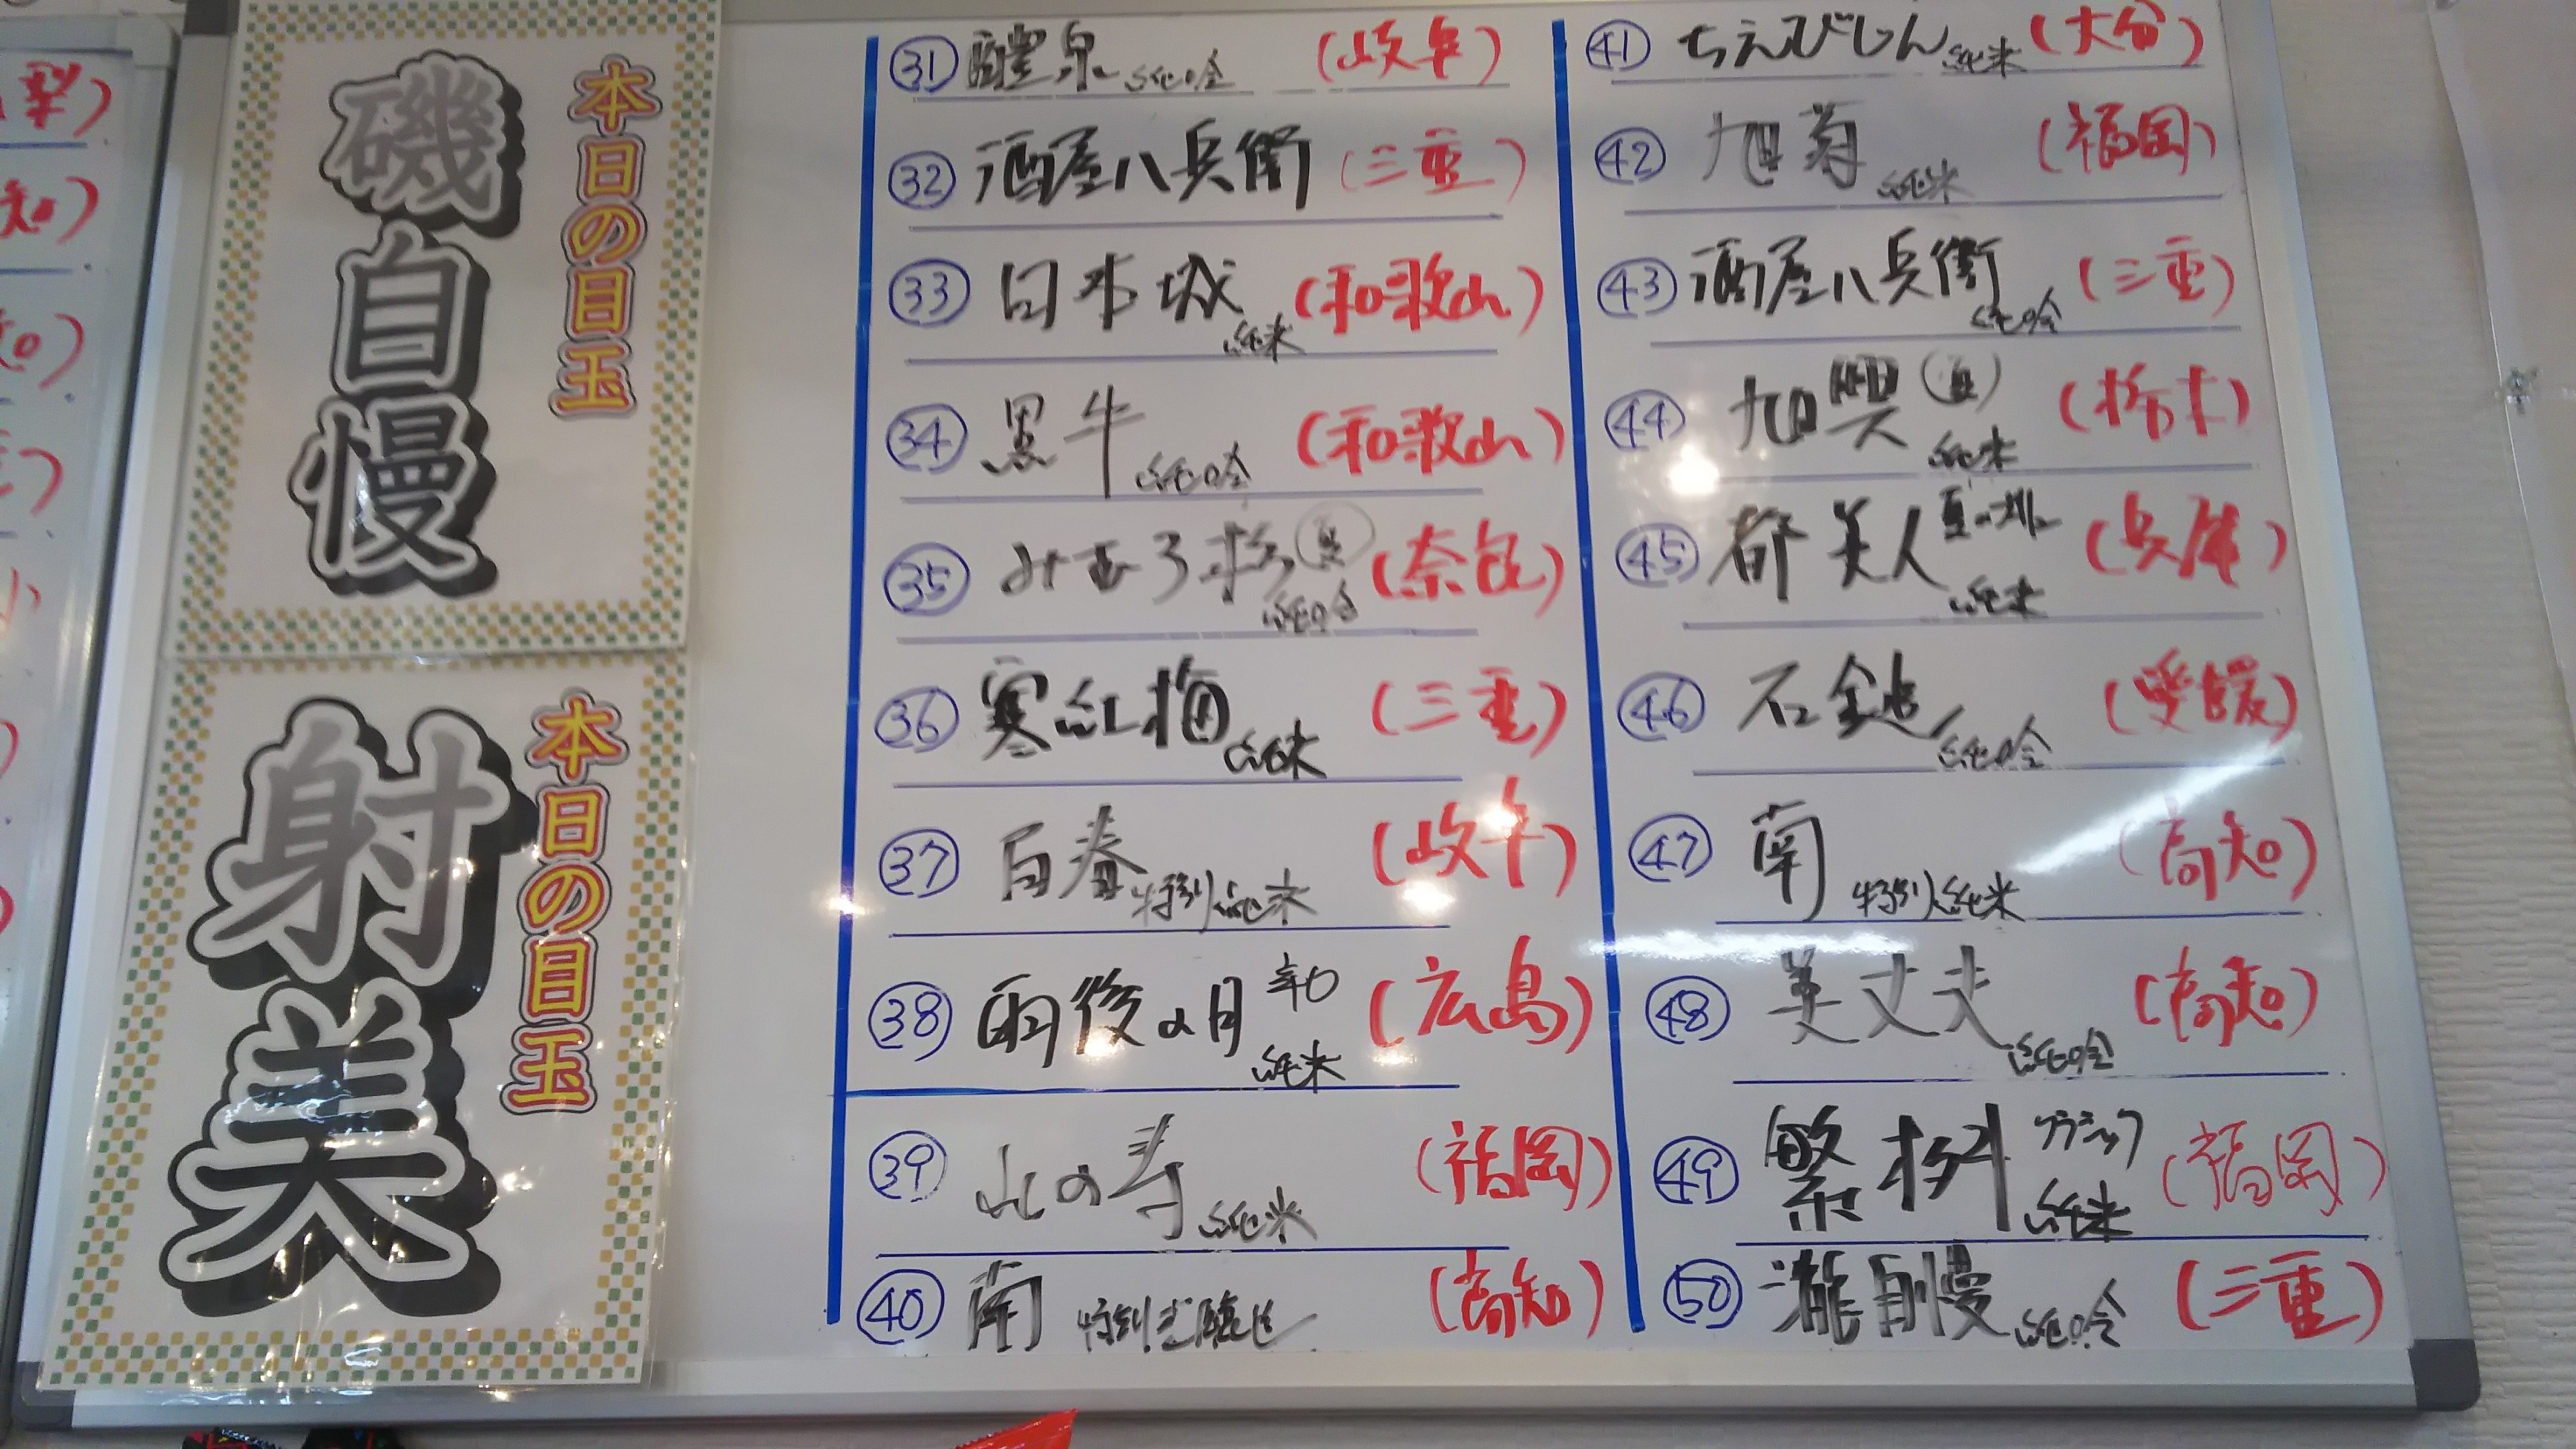 本日の目玉
磯自慢
本日の目玉
射美
㉛ 醴泉 純吟 (岐阜)
㉜ 酒屋八兵衛 (三重)
㉝ 日本城 純米 (和歌山)
㉞ 黒牛 純吟 (和歌山)
㉟ みむろ杉 夏 純吟 (奈良)
㊱ 寒紅梅 純米 (三重)
㊲ 百春 特別純米 (岐阜)
㊳ 雨後の月 辛口 純米 (広島)
㊴ 山の寿 純米 (福岡)
㊵ 南 特別本醸造 (高知)
㊶ ちえびじん 純米 (大分)
㊷ 旭菊 純米 (福岡)
㊸ 酒屋八兵衛 純吟 (三重)
㊹ 旭興 (夏) 純米 (栃木)
㊺ 都美人 純米 (兵庫)
㊻ 石鎚 純吟 (愛媛)
㊼ 南 特別純米 (高知)
㊽ 美丈夫 純吟 (高知)
㊾ 繁桝 クラシック 純米 (福岡)
㊿ 瀧自慢 純吟 (三重)
知)